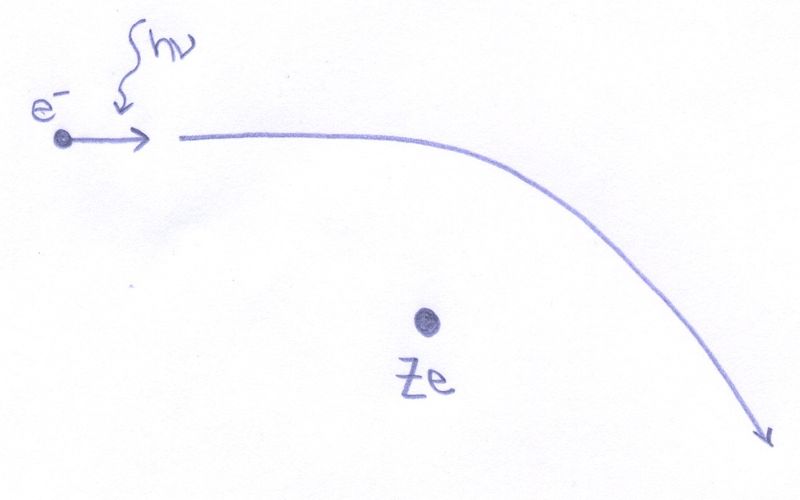 hν
e⁻
Ze